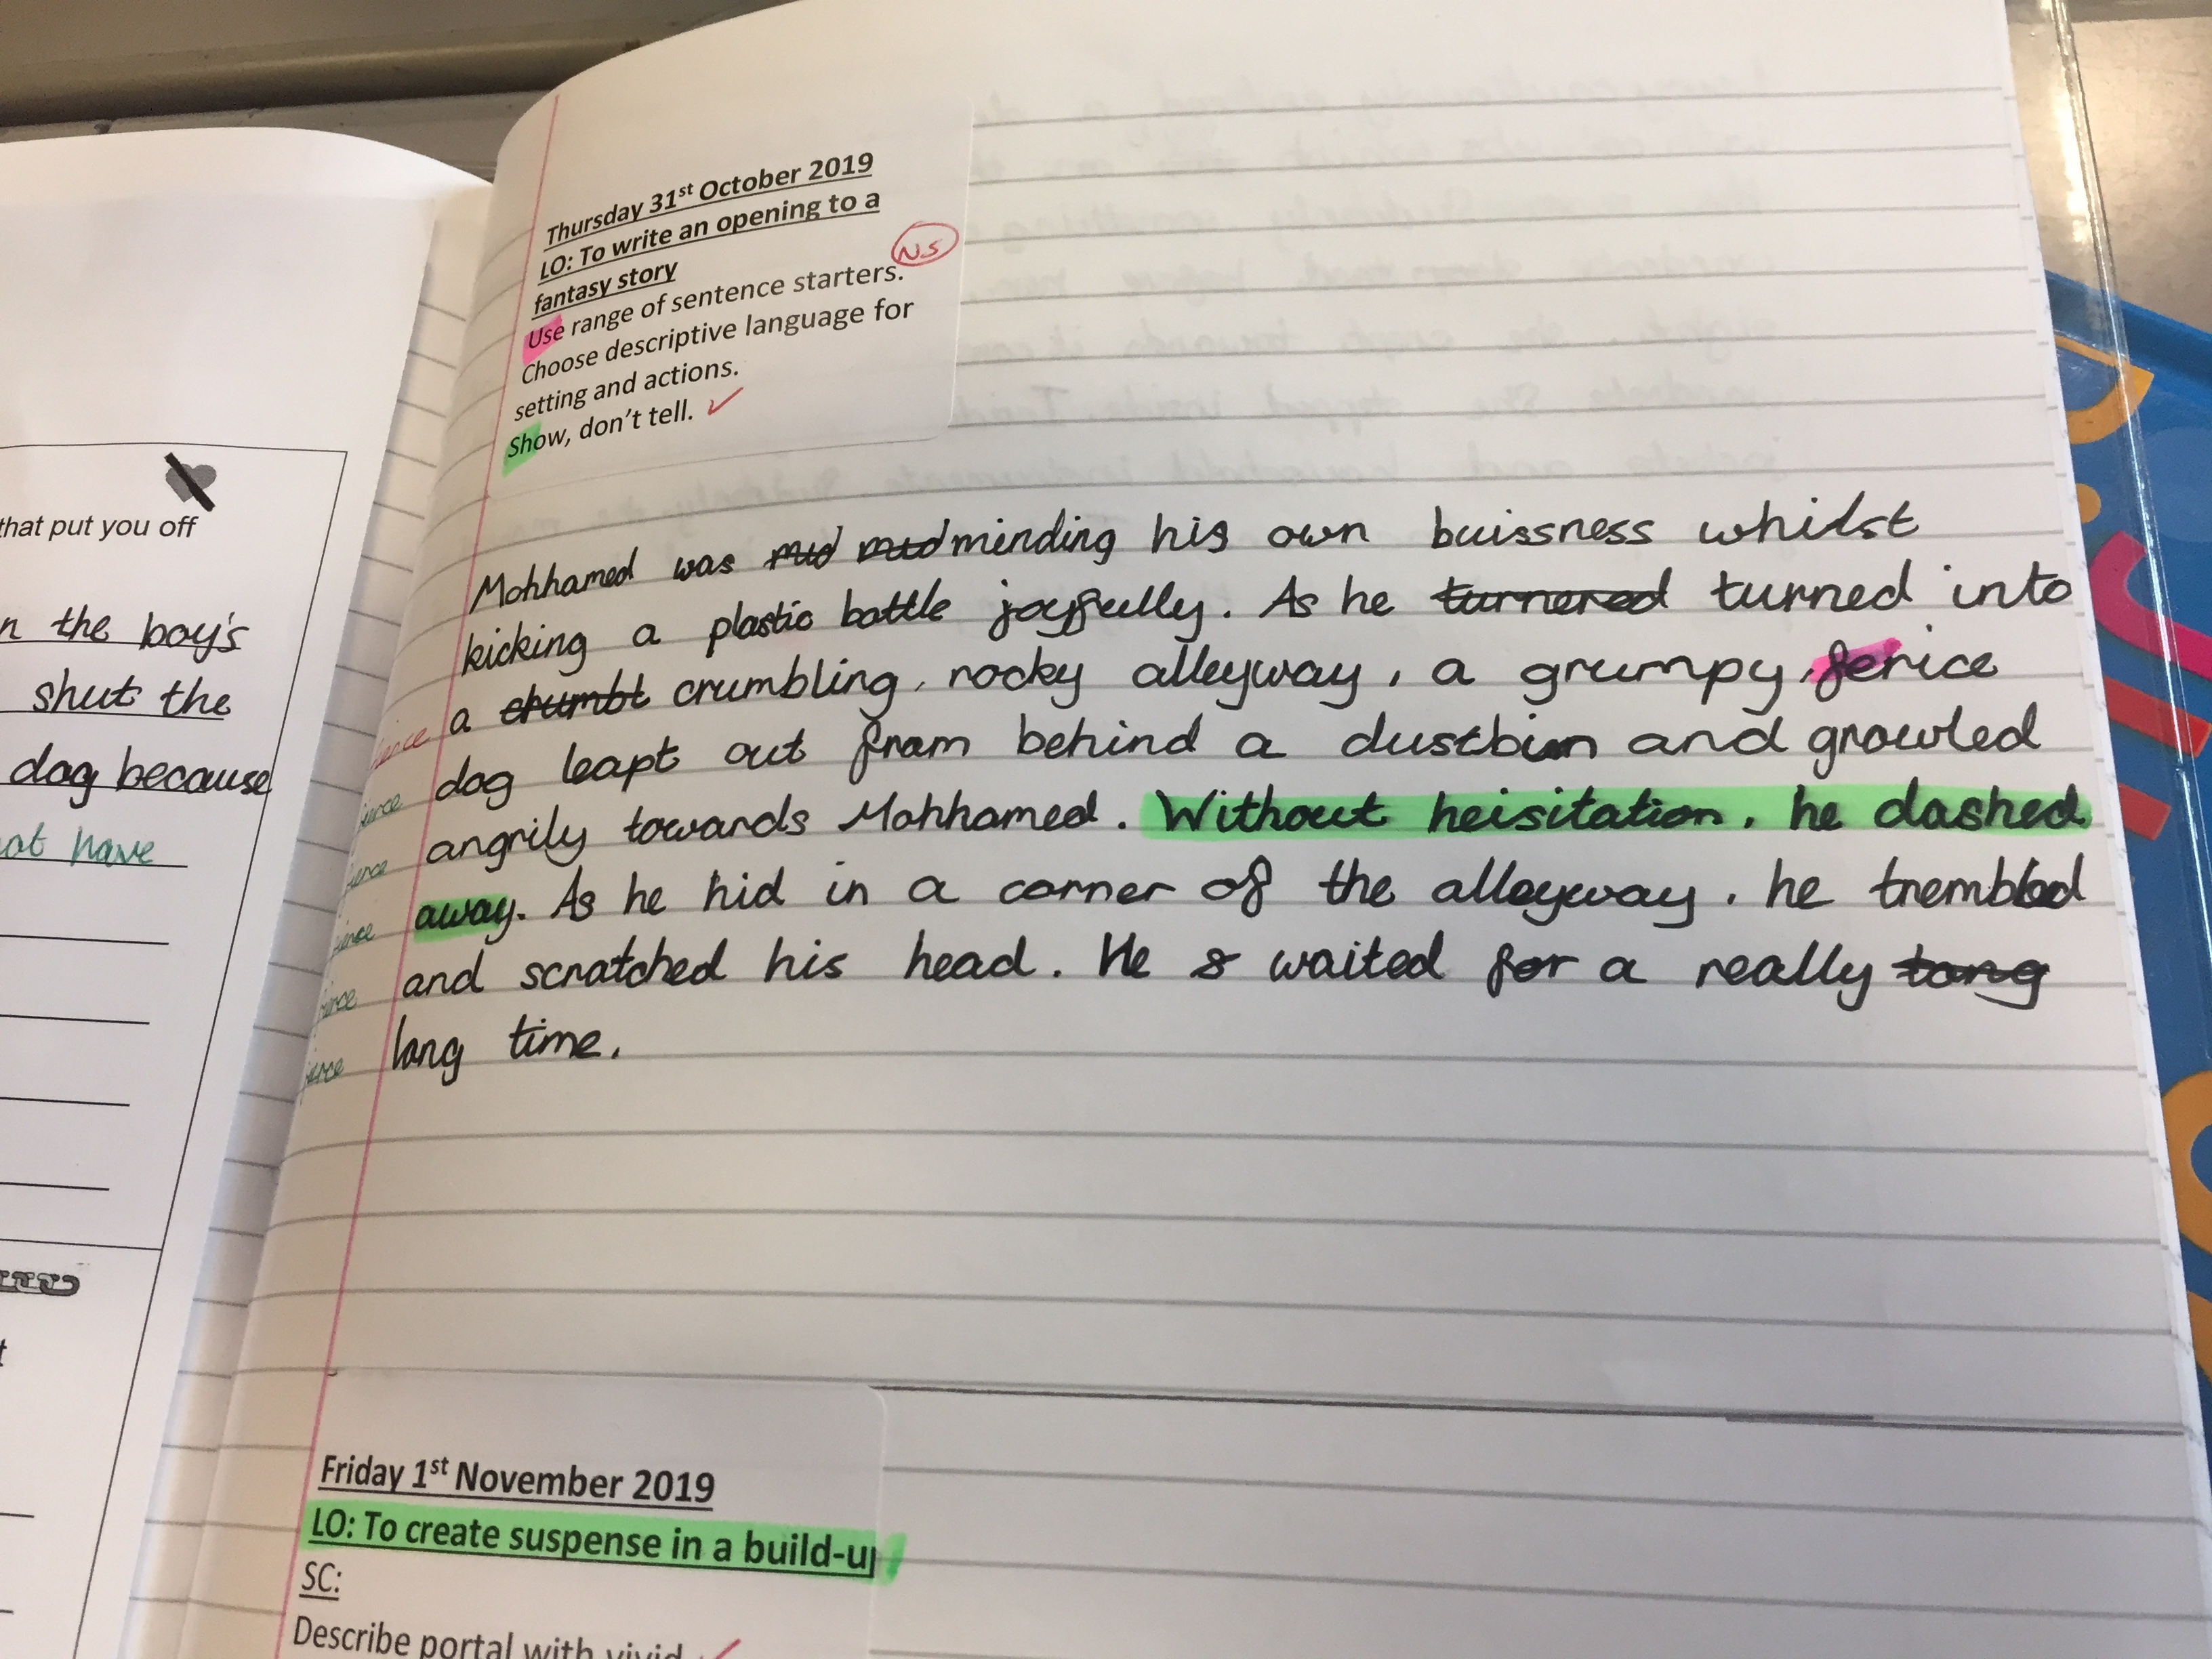 that put you off
n the boy's
shut the
dog because
ot have
Thursday 31st October 2019
LO: To write an opening to a
fantasy story
NS
Use range of sentence starters.
Choose descriptive language for
setting and actions.
Show, don't tell. ✓
Mohhamed was mid mid minding his own buissness whilst
kicking a plastic bottle joyfully. As he turnered turned into
a crumbl crumbling, rocky alleyway, a grumpy, ferice
dog leapt out from behind a dustbin and growled
angrily towards Mohhamed. Without heisitation, he dashed
away. As he hid in a corner of the alleyway, he trembled
and scratched his head. He s waited for a really long
long time.
ierce
ierce
ierce
ierce
ierce
Friday 1st November 2019
LO: To create suspense in a build-u
SC:
Describe portal with vivid ✓